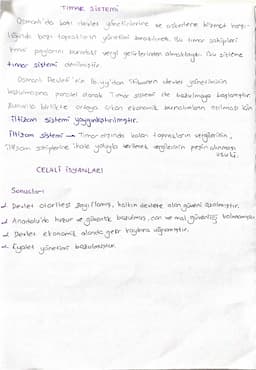 TIMAR SİSTEMİ
Osmanlı'da bazı devlet yöneticilerine ve askerlere hizmet karşı-
lığında bazı toprakların yönetimi bırakılırdı. Bu tımar sahipleri
maaş paylarını buradaki vergi gelirlerinden almaktaydı. Bu sisteme
tımar sistemi denilmiştir.
Osmanlı Devleti'nin 16.yy'dan itibaren devlet yönetiminin
bozulmasına paralel olarak Tımar sistemi de bozulmaya başlamıştır.
Bununla birlikte ortaya çıkan ekonomik bunalımların aşılması için
iltizam sistemi yaygınlaştırılmıştır.
İltizam sistemi → Tımar dışında kalan toprakların vergilerinin,
iltizam sahiplerine ihale yoluyla verilmek vergilerinin peşin alınması
usulü.
CELALİ İSYANLARI
Sonuçları
Devlet otoritesi zayıflamış, halkın devlete olan güveni azalmıştır.
Anadolu'da huzur ve güvenlik bozulmuş, can ve mal güvenliği kalmamıştır.
Devlet ekonomik alanda gelir kaybına uğramıştır.
Eyalet yönetimi bozulmuştur.